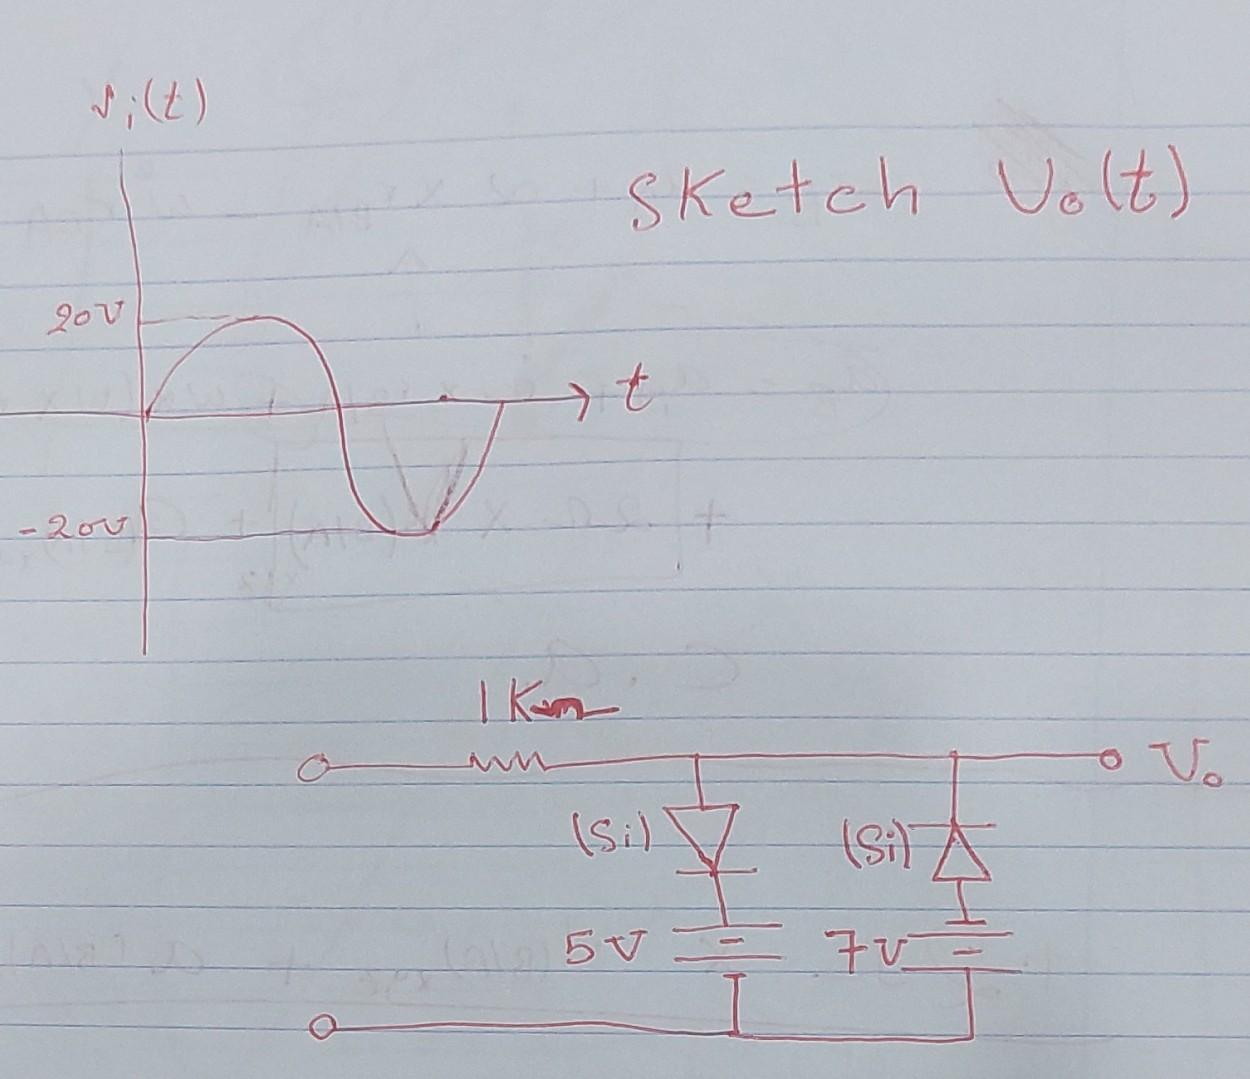 v_i(t)
Sketch V_o(t)
20V
t
-20V
1K
V_o
(Si)
(Si)
5V
7V